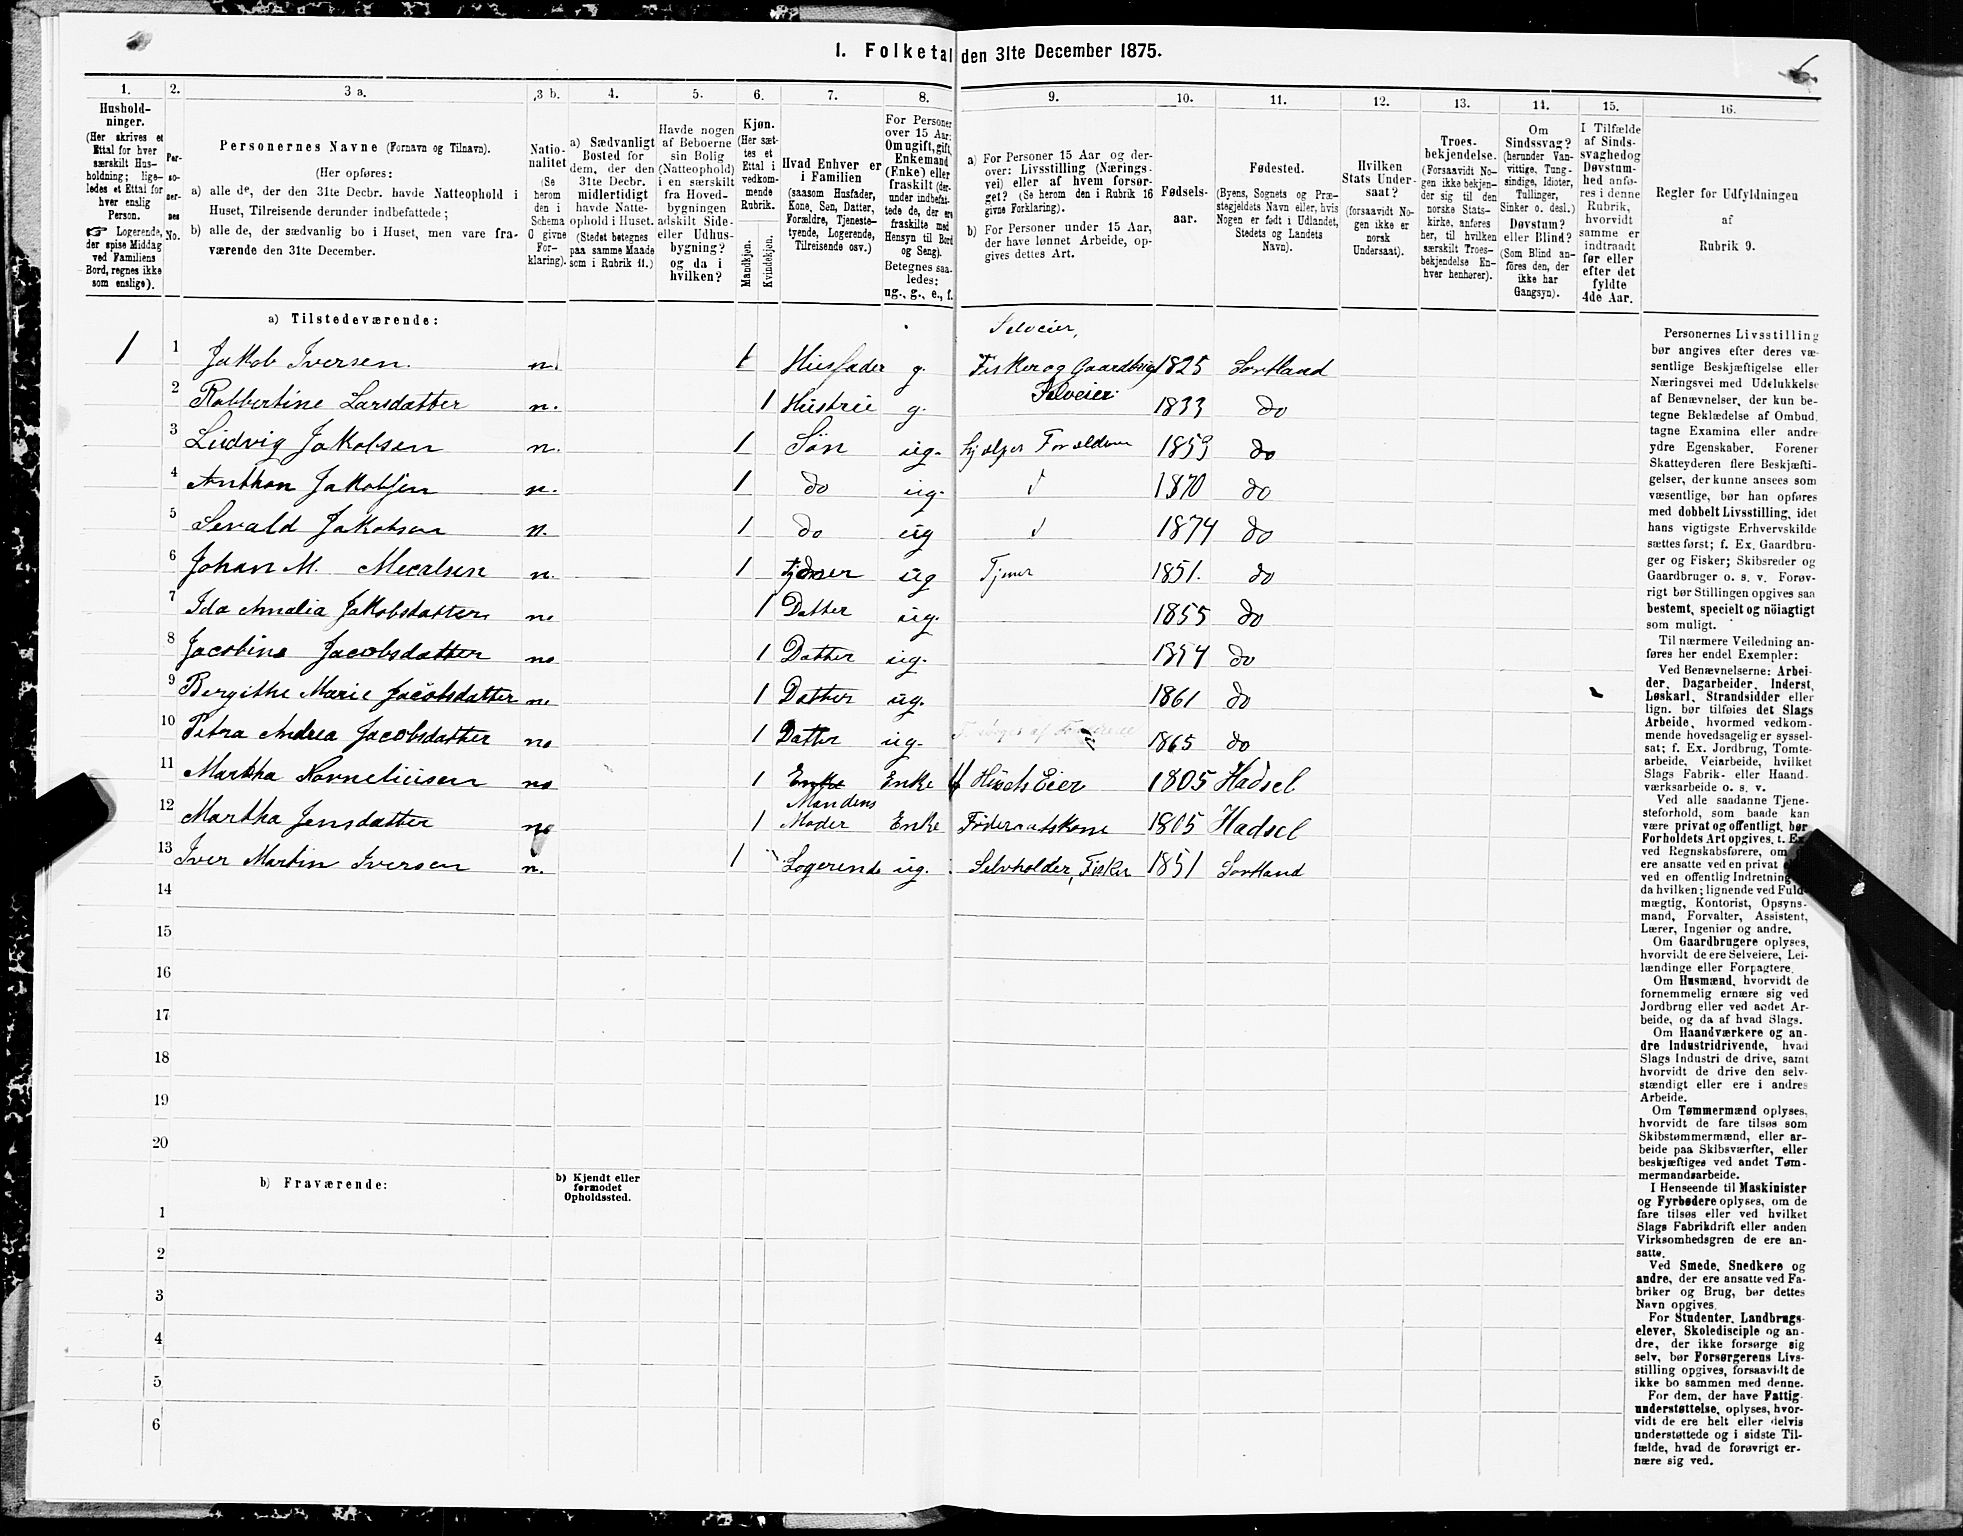 1. Folketal den 31te December 1875.
1. 2. 3 a. 3 b. 4. 5. 6. 7. 8. 9. 10. 11. 12. 13. 14. 15. 16.
Hushold-
ninger.
(Her skrives et
Ettal for hver
særskilt Hus-
holdning; lige-
ledes et Ettal for
hver enslig
Person.
☞ Logerende,
der spise Middag
ved Familiens
Bord, regnes ikke
som enslige).
Per-
so-
ner-
nes
No.
Personernes Navne (Fornavn og Tilnavn).
(Her opføres:
a) alle de, der den 31te Decbr. havde Natteophold i
Huset, Tilreisende derunder indbefattede;
b) alle de, der sædvanlig bo i Huset, men vare fra-
værende den 31te December.
Natio-
nalitet
(Se
herom
den i
Schema
O givne
For-
klaring).
a) Sædvanligt
Bosted for
dem, der den
31te Decbr.
midlertidigt
havde Natte-
ophold i Huset.
(Stedet betegnes
paa samme Maade
som i Rubrik 11.)
Havde nogen
af Beboerne
sin Bolig
(Natteophold)
i en særskilt
fra Hoved-
bygningen
adskilt Side-
eller Udhus-
bygning?
og da i
hvilken?
Kjøn.
(Her sæt-
tes et
Ettal i
vedkom-
mende
Rubrik.
Mandkjøn.
Kvindekjøn.
Hvad Enhver er
i Familien
(saasom Husfader,
Kone, Søn, Datter,
Forældre, Tjeneste-
tyende, Logerende,
Tilreisende osv.)
For Personer
over 15 Aar:
Om ugift, gift,
Enkemand
(Enke) eller
fraskilt (der-
under indbefat-
tede de, der ere
fraskilte med
Hensyn til Bord
og Seng).
Betegnes saa-
ledes:
ug., g., e., f.
a) For Personer 15 Aar og der-
over: Livsstilling (Nærings-
vei) eller af hvem forsør-
get? (Se herom den i Rubrik 16
givne Forklaring).
b) For Personer under 15 Aar,
der have lønnet Arbeide, op-
gives dettes Art.
Fødsels-
aar.
Fødested.
(Byens, Sognets og Præ-
stegjeldets Navn eller, hvis
Nogen er født i Udlandet,
Stedets og Landets
Navn).
Hvilken
Stats Under-
saat?
(forsaavidt No-
gen ikke er
norsk
Undersaat).
Troes-
bekjendelse.
(Forsaavidt No-
gen ikke bekjen-
der sig til den
norske Stats-
kirke, anføres
her, til hvilken
særskilt Troes-
bekjendelse En-
hver henhører).
Om
Sindssvag?
(herunder Van-
vittige, Tung-
sindige, Idioter,
Tullinger,
Sinker o. desl.)
Døvstum?
eller Blind?
(Som Blind an-
føres den, der
ikke har
Gangsyn).
I Tilfælde
af Sinds-
svaghed og
Døvstum-
hed anfø-
res i denne
Rubrik,
hvorvidt
samme er
indtraadt
før eller
efter det
fyldte
4de Aar.
Regler for Udfyldningen
af
Rubrik 9.
a) Tilstedeværende:
Selveier,
1 1 Jakob Iversen. n. 1 Husfader g. Fisker og Gaardbrug 1825 Sortland
Selveier.
2 Robbertine Larsdatter n. 1 Hustrue g. 1833 do
3 Ludvig Jakobsen n. 1 Søn ug. hjelper Foreldrene 1859 do
4 Anthon Jakobsen n. 1 do ug. 1870 do
5 Sevald Jakobsen n. 1 do ug 1874 do
6 Johan M. n. 1 tjener ug Tjener 1851. do
7 Ida Amalia Jakobsdatter n. 1 Datter ug. 1855 do
8 Jacobine Jacobsdatter no 1 Datter ug. do
9 Bergithe Marie Jacobsdatter n. 1 Datter ug. 1861 do
10 Petra Andrea Jacobsdatter no 1 Datter ug. 1865 do
11 Martha Korneliusen no 1 Enke Enke Huets Eier 1805 Hadsel
12 Martha Jensdatter no 1 Mandens Moder Enke Føderaadskone 1805 Hadsel
13 Iver Martin Iversen n. 1 Logerende ug. Selvholder, Fisker 1851 Sortland
14
15
16
17
18
19
20
b) Fraværende:
b) Kjendt eller
formodet
Opholdssted.
1
2
3
4
5
6
Personernes Livsstilling
bør angives efter deres væ-
sentlige Beskjæftigelse eller
Næringsvei med Udelukkelse
af Benævnelser, der kun be-
tegne Beklædelse af Ombud,
tagne Examina eller andre
ydre Egenskaber. Forener
Skatteyderen flere Beskjæfti-
gelser, der kunne ansees som
væsentlige, bør han opføres
med dobbelt Livsstilling, idet
hans vigtigste Erhvervskilde
sættes først; f. Ex. Gaardbru-
ger og Fisker; Skibsreder og
Gaardbruger o. s. v. Forøv-
rigt bør Stillingen opgives saa
bestemt, specielt og nöiagtigt
som muligt.
Til nærmere Veiledning an-
føres her endel Exempler:
Ved Benævnelserne: Arbei-
der, Dagarbeider, Inderst,
Løskarl, Strandsidder eller
lign. bør tilføies det Slags
Arbeide, hvormed vedkom-
mende hovedsagelig er syssel-
sat; f. Ex. Jordbrug, Tomte-
arbeide, Veiarbeide, hvilket
Slags Fabrik- eller Haand-
værksarbeide o. s. v.
Ved alle saadanne Tjene-
steforhold, som baade kan
være privat og offentligt, bør
Forholdets Art opgives, t. Ex.
ved Regnskabsførere, om
ere ansatte ved en privat
ved en offentlig Indretning
da hvilken; lignende ved Fuld-
mægtig, Kontorist, Opsyns-
mand, Forvalter, Assistent,
Lærer, Ingeniør og andre.
Om Gaardbrugere oplyses,
hvorvidt de ere Selveiere, Lei-
lændinge eller Forpagtere.
Om Husmænd, hvorvidt de
fornemmelig ernære sig ved
Jordbrug eller ved andet Ar-
beide, og da af hvad Slags.
Om Haandværkere og an-
dre Industridrivende, hvad
Slags Industri de drive, samt
hvorvidt de drive den selv-
stændigt eller ere i andres
Arbeide.
Om Tømmermænd oplyses,
hvorvidt de fare tilsøs som
Skibstømmermænd, eller ar-
beide paa Skibsværfter, eller
beskjæftiges ved andet Tøm-
mermandsarbeide.
I Henseende til Maskinister
og Fyrbødere oplyses, om de
fare tilsøs eller ved hvilket
Slags Fabrikdrift eller anden
Virksomhedsgren de ere an-
satte.
Ved Smede, Snedkere og
andre, der ere ansatte ved Fa-
briker og Brug, bør dettes
Navn opgives.
For Studenter, Landbrugs-
elever, Skoledisciple og an-
dre, der ikke forsørge sig
selv, bør Forsørgerens Livs-
stilling opgives, forsaavidt de
ikke bo sammen med denne.
For dem, der have Fattig-
understøttelse, oplyses, hvor-
vidt de ere helt eller delvis
understøttede og i sidste Til-
fælde, hvad de forøvrigt er-
nære sig ved.